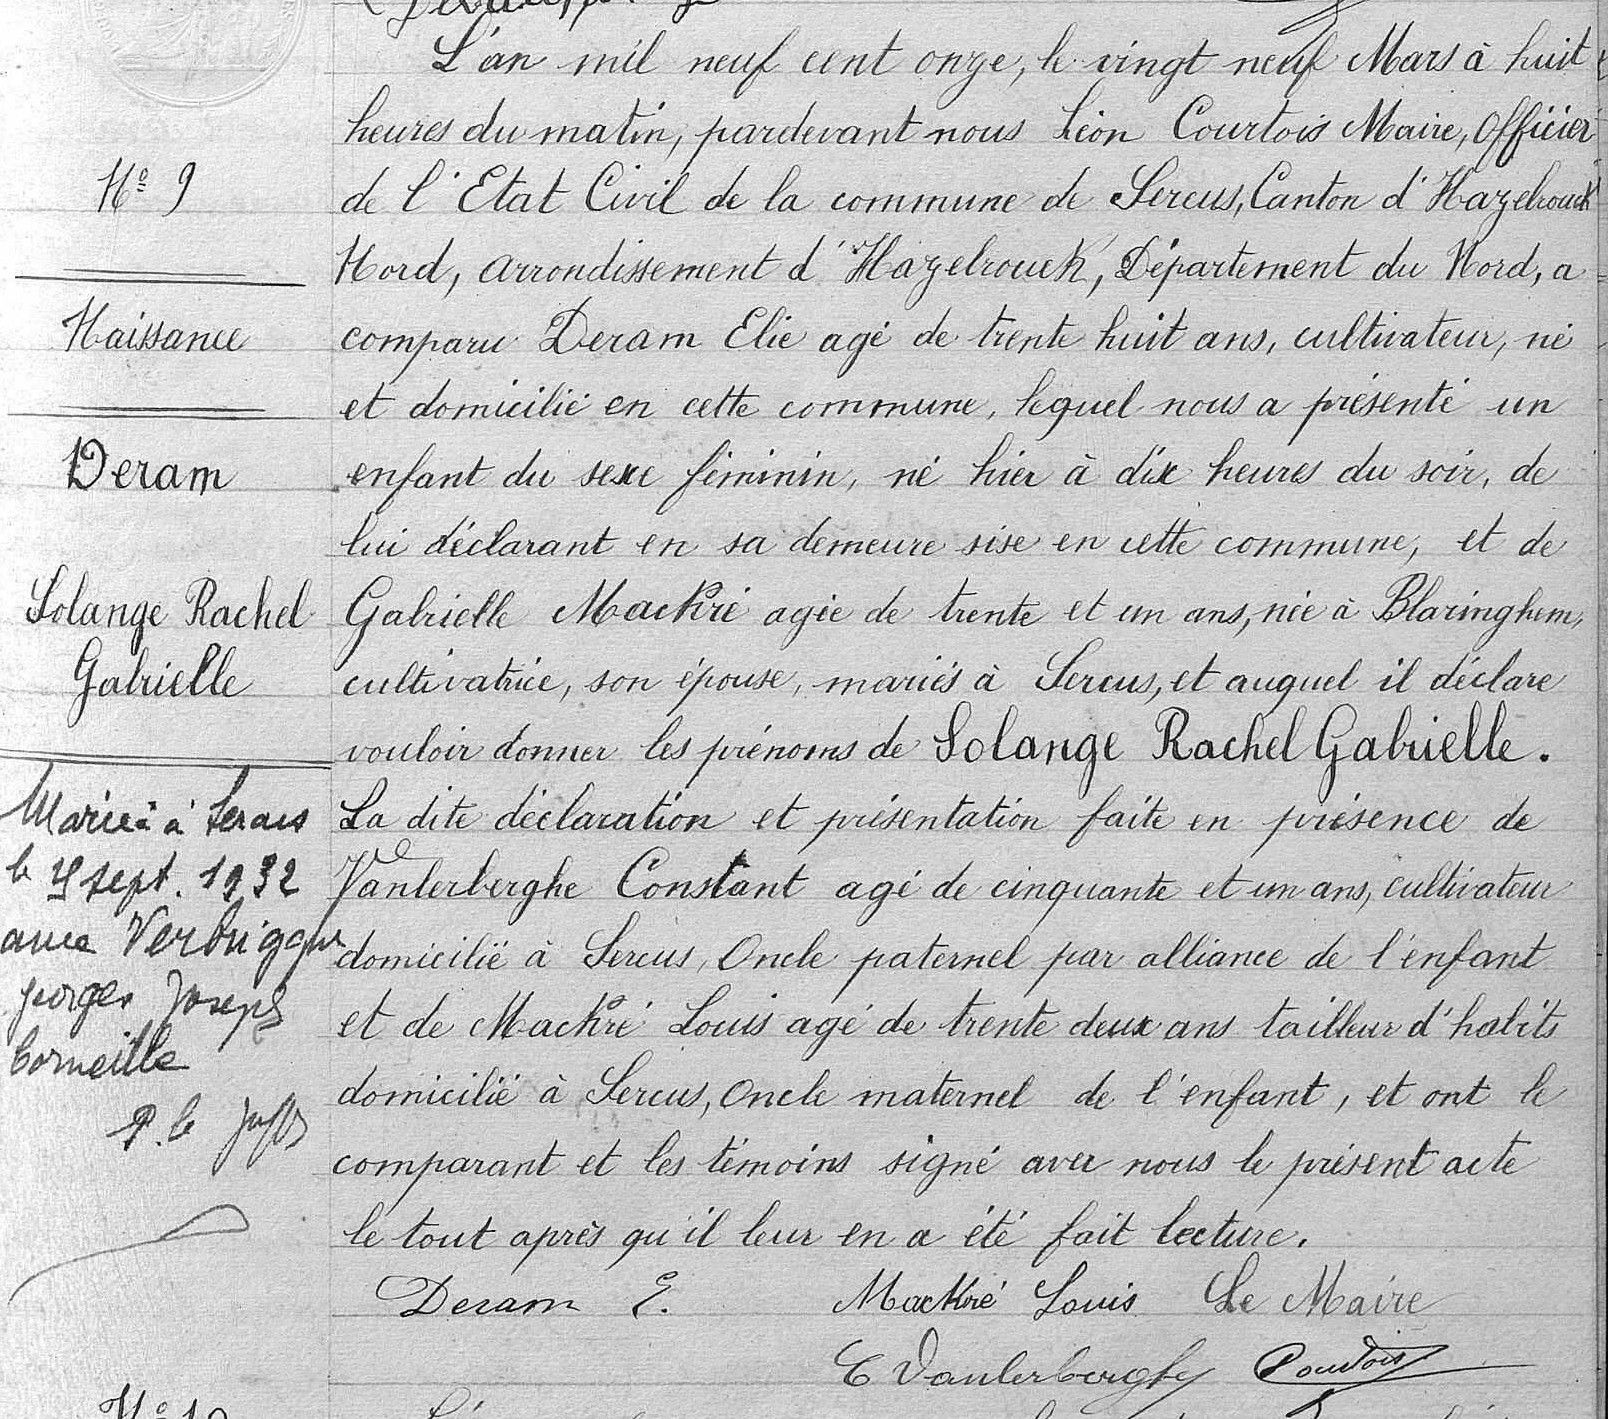 L'an mil neuf cent onze, le vingt neuf Mars à huit
heures du matin, pardevant nous Léon Courtois Maire, Officier
N° 9
de l'Etat Civil de la commune de Sercus, Canton d'Hazebrouck
Nord, arrondissement d'Hazebrouck, Département du Nord, a
Naissance
comparu Deram Elie agé de trente huit ans, cultivateur, né
et domicilié en cette commune, lequel nous a présenté un
Deram
enfant du sexe féminin, né hier à dix heures du soir, de
lui déclarant en sa demeure sise en cette commune, et de
Solange Rachel
Gabrielle
Gabrielle Mackré agée de trente et un ans, née à Blaringhem,
cultivatrice, son épouse, mariés à Sercus, et auquel il déclare
vouloir donner les prénoms de Solange Rachel Gabrielle.
Mariée à Sercus
le sept. 1932
avec
Georges Joseph
Corneille
La dite déclaration et présentation faite en présence de
Vanlerberghe Constant agé de cinquante et un ans, cultivateur
domicilié à Sercus, Oncle paternel par alliance de l'enfant
et de Mackré Louis agé de trente deux ans tailleur d'habits
domicilié à Sercus, Oncle maternel de l'enfant, et ont le
comparant et les témoins signé avec nous le présent acte
le tout après qu'il leur en a été fait lecture.
Deram E. Mackré Louis Le Maire
C Vanlerberghe Courtois
N° 10